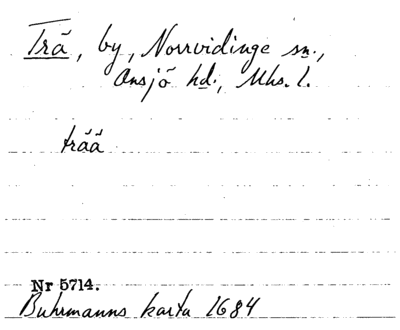 Trä, by, Norrvidinge sn.,
Onsjö hd., Mhs. l.
trää
Nr 5714.
Buhrmanns karta 1684